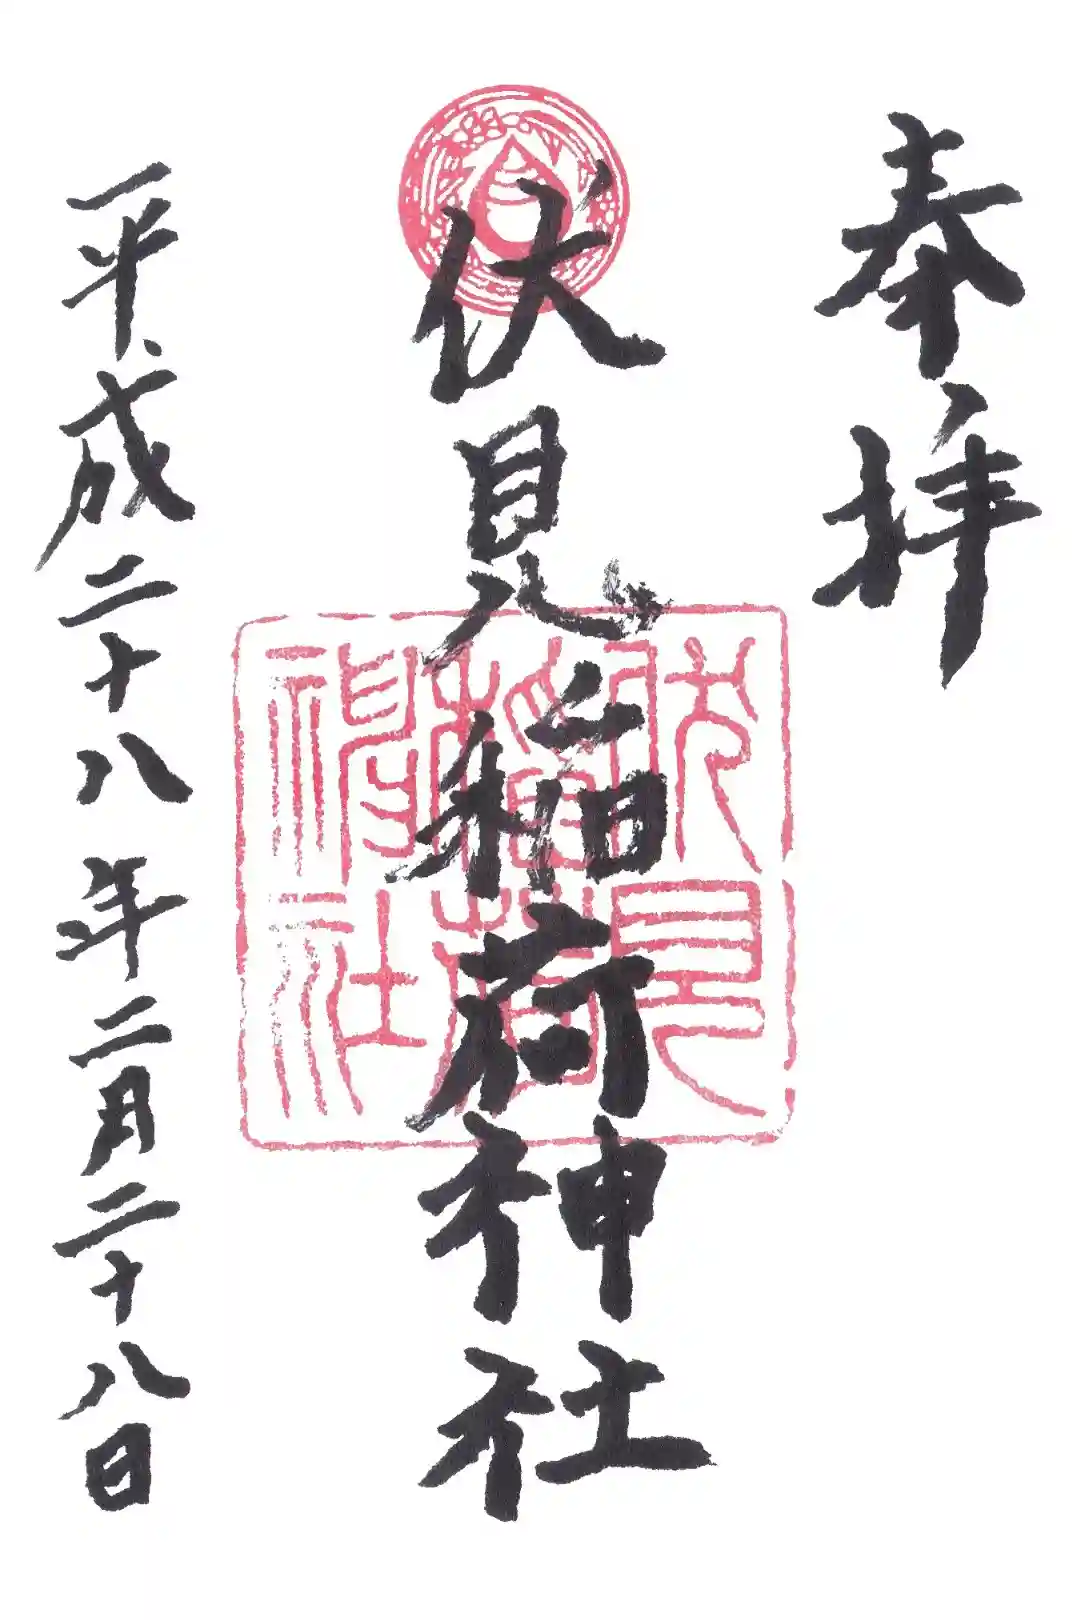 奉拝
伏見稲荷神社
伏見稲荷神社
平成二十八年二月二十八日